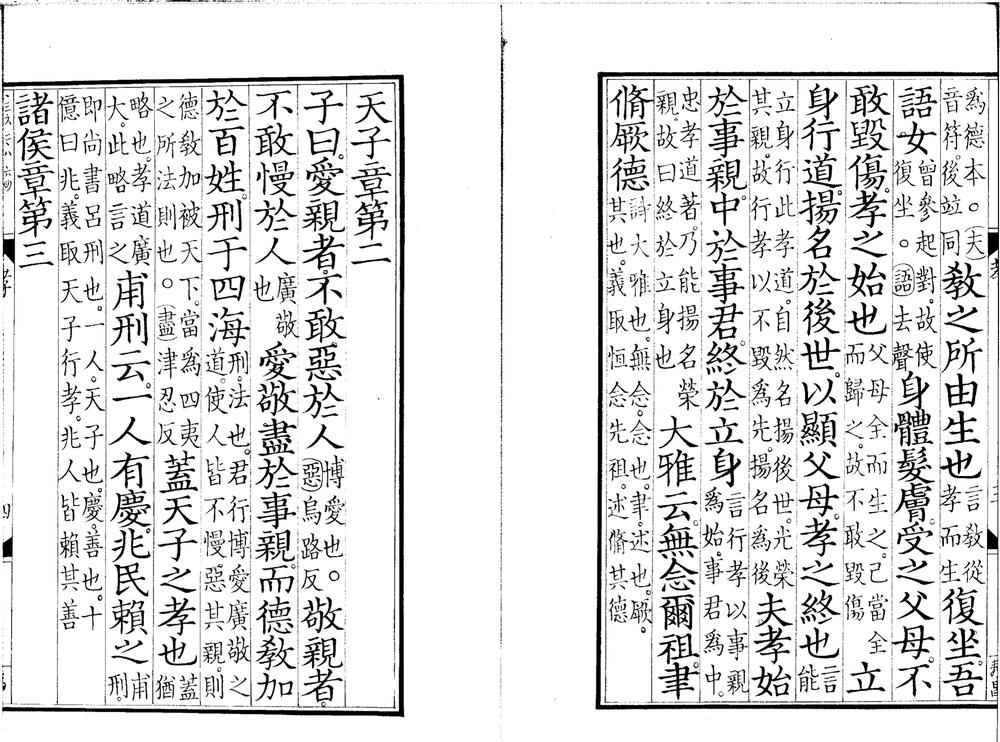 爲德本。○夫
音符。後竝同
教之所由生也
言教從
孝而生
復坐。吾
語女
曾參起對。故使
復坐。○語去聲
身體髮膚。受之父母。不
敢毀傷。孝之始也
父母全而生之。己當全
而歸之。故不敢毀傷
立
身行道。揚名於後世。以顯父母。孝之終也
能
立身行此孝道。自然名揚後世。光榮
其親。故行孝以不毀爲先。揚名爲後
夫孝始
於事親。中於事君。終於立身
言行孝以事親
爲始。事君爲中。
忠孝道著。乃能揚名榮
親。故曰終於立身也
大雅云。無念爾祖。聿
脩厥德
詩大雅也。無念。念也。聿。述也。厥。
其也。義取恒念先祖。述脩其德
天子章第二
子曰。愛親者。不敢惡於人
博愛也。○
惡烏路反
敬親者。
不敢慢於人
廣敬
也
愛敬盡於事親。而德教加
於百姓。刑于四海
刑。法也。君行博愛廣敬之
道。使人皆不慢惡其親。則
德教加被天下。當爲四夷
之所法則也。○盡津忍反
蓋天子之孝也
蓋
猶
略也。孝道廣
大。此略言之
甫刑云。一人有慶。兆民賴之
甫
刑。
即尚書呂刑也。一人。天子也。慶。善也。十
億曰兆。義取天子行孝。兆人皆賴其善
諸侯章第三